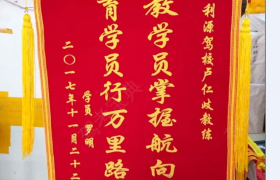 利源驾校卢仁岐教练
教学员掌握航向
育学员行万里路
学员 罗明
二〇一七年十一月二十二